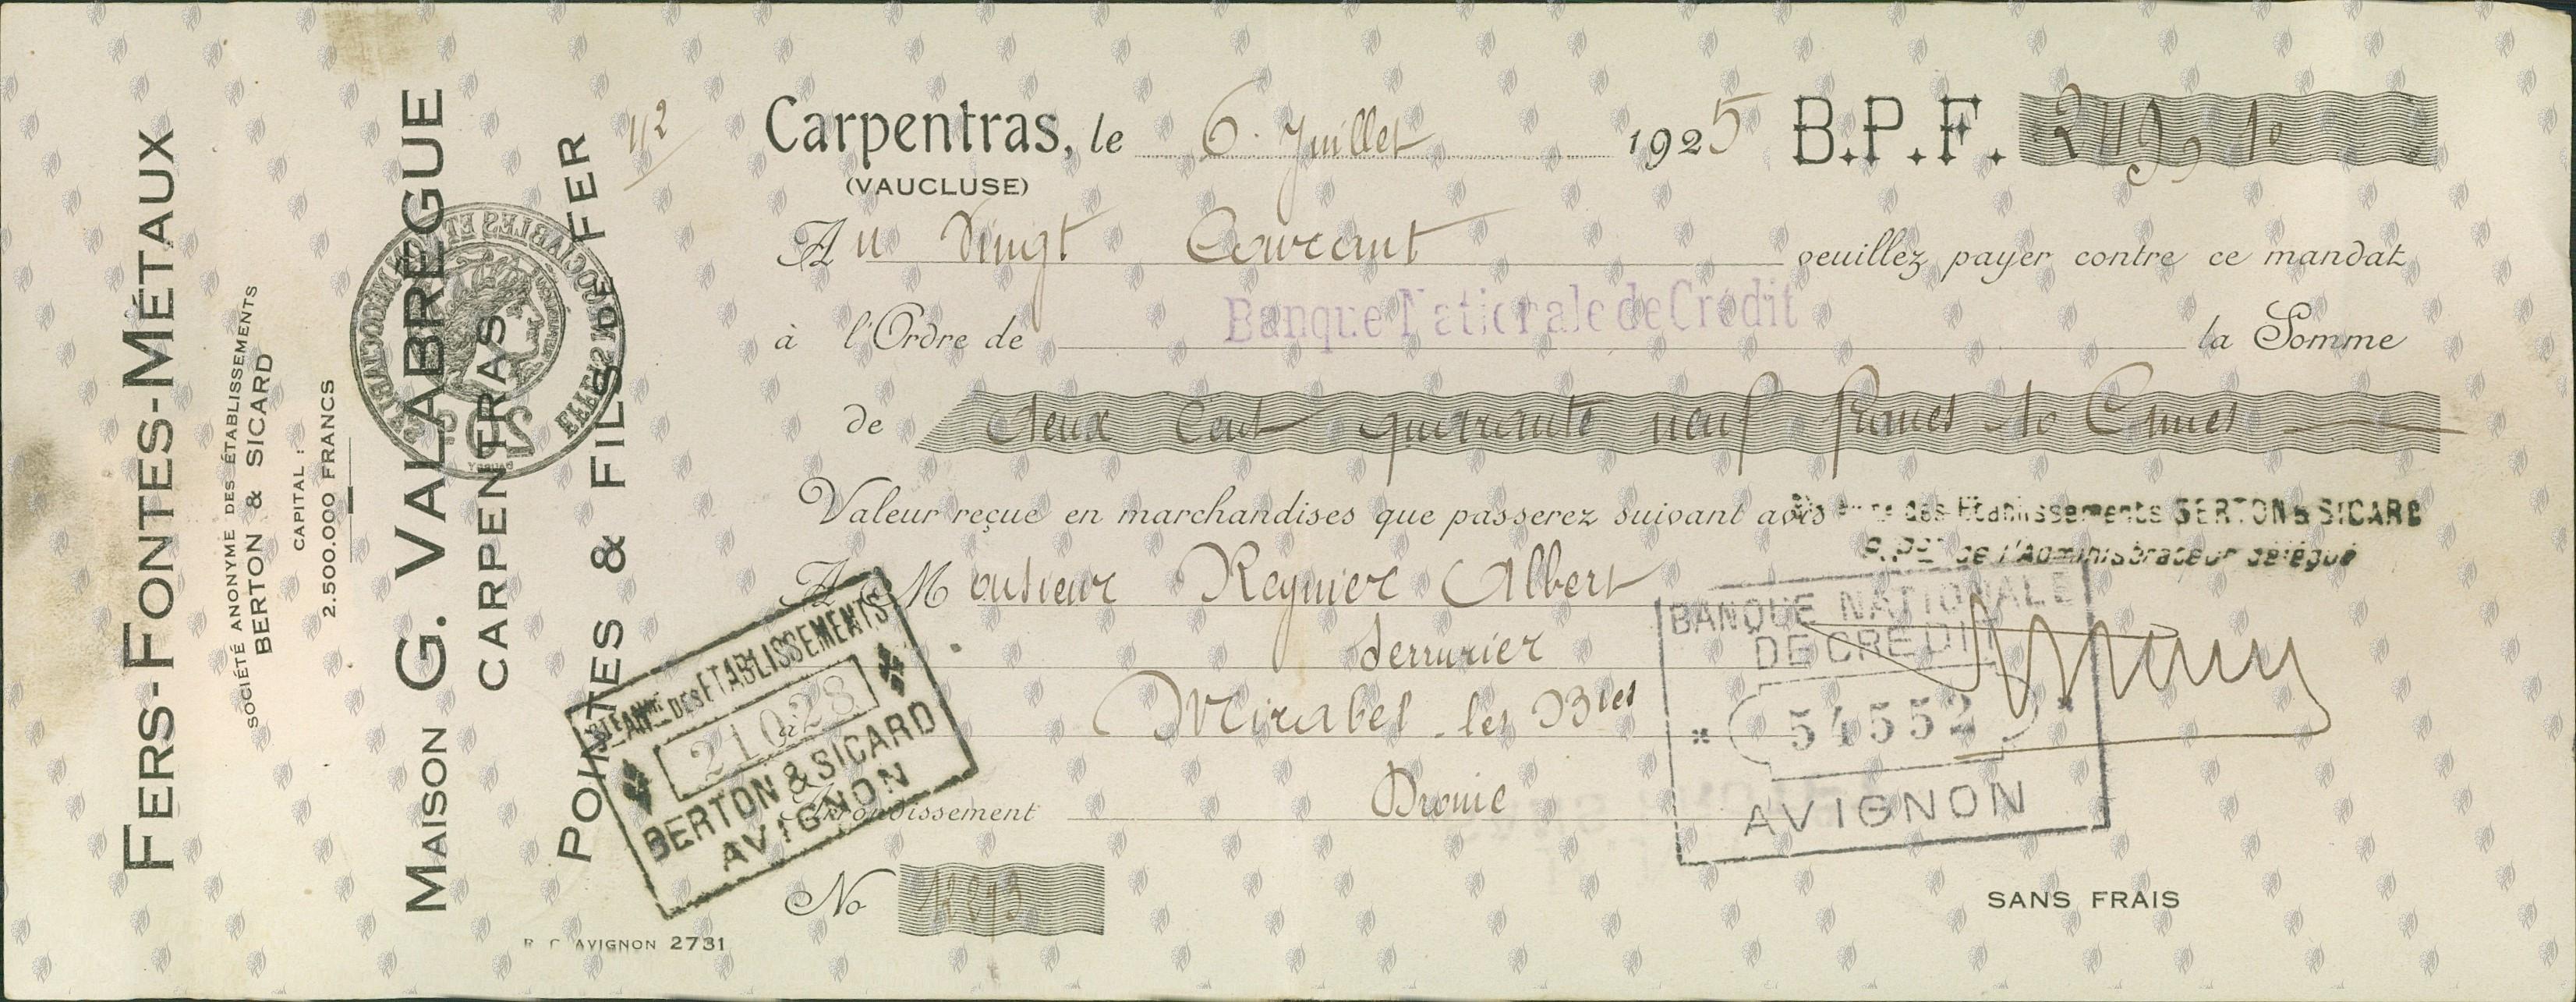 FERS-FONTES-MÉTAUX
SOCIÉTÉ ANONYME DES ÉTABLISSEMENTS
BERTON & SICARD
CAPITAL :
2.500.000 FRANCS
MAISON G. VALABRÈGUE
CARPENTRAS
POINTES & FILS DE FER
Carpentras, le 6 Juillet 1925 B.P.F. 249,10
(VAUCLUSE)
Au Vingt Courant veuillez payer contre ce mandat
à l'Ordre de Banque Nationale de Crédit la Somme
de deux Cent quarante neuf francs 10 Cmes
Valeur reçue en marchandises que passerez suivant avis
des Etablissements BERTON & SICARD
de l'Administrateur délégué
A Monsieur Reynier Albert
Serrurier
Mirabel les B^ies
Arrondissement Drome
STÉ AN^ME DES ETABLISSEMENTS
21028
BERTON & SICARD
AVIGNON
BANQUE NATIONALE
DE CREDIT
54552
AVIGNON
No
SANS FRAIS
R. C. AVIGNON 2731